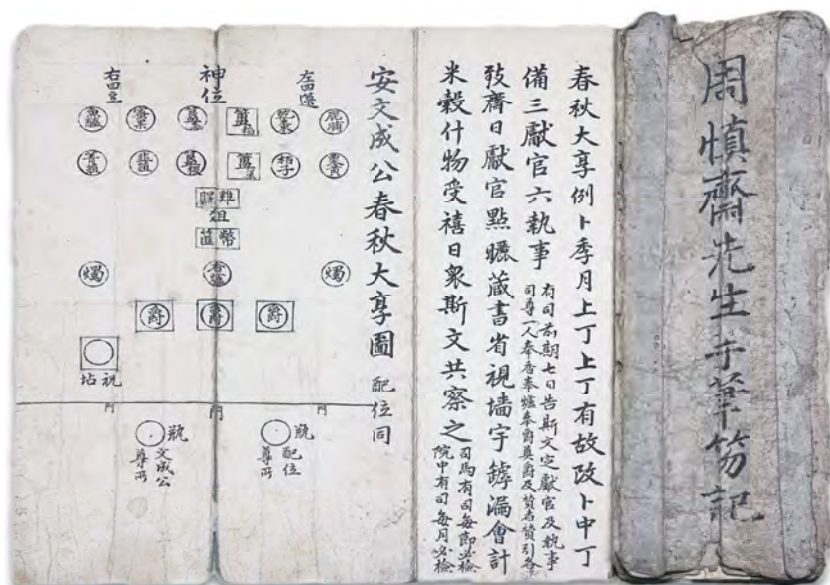 周慎齋先生手笏記
春秋大享例卜季月上丁上丁有故改卜中丁
備三獻官六執事
有司前期七日告斯文定獻官及執事
司尊一人奉香奉爐奉爵奠爵及贊者贊引各
致齋日獻官點曬蔵書省視墻宇罅漏會計
米穀什物受禧日衆斯文共察之
司馬有司每節必檢
院中有司每月必檢
安文成公春秋大享圖 配位同
左四籩
神位
右四豆
鹿脯
乾棗
簠稻
魚醢
栗黃
柿子
菁菹
雉
俎
幣
篚
燭
香爐
燭
爵
爵
爵
祝
坫
門
門
門
甁
配位
尊所
甁
文成公
尊所